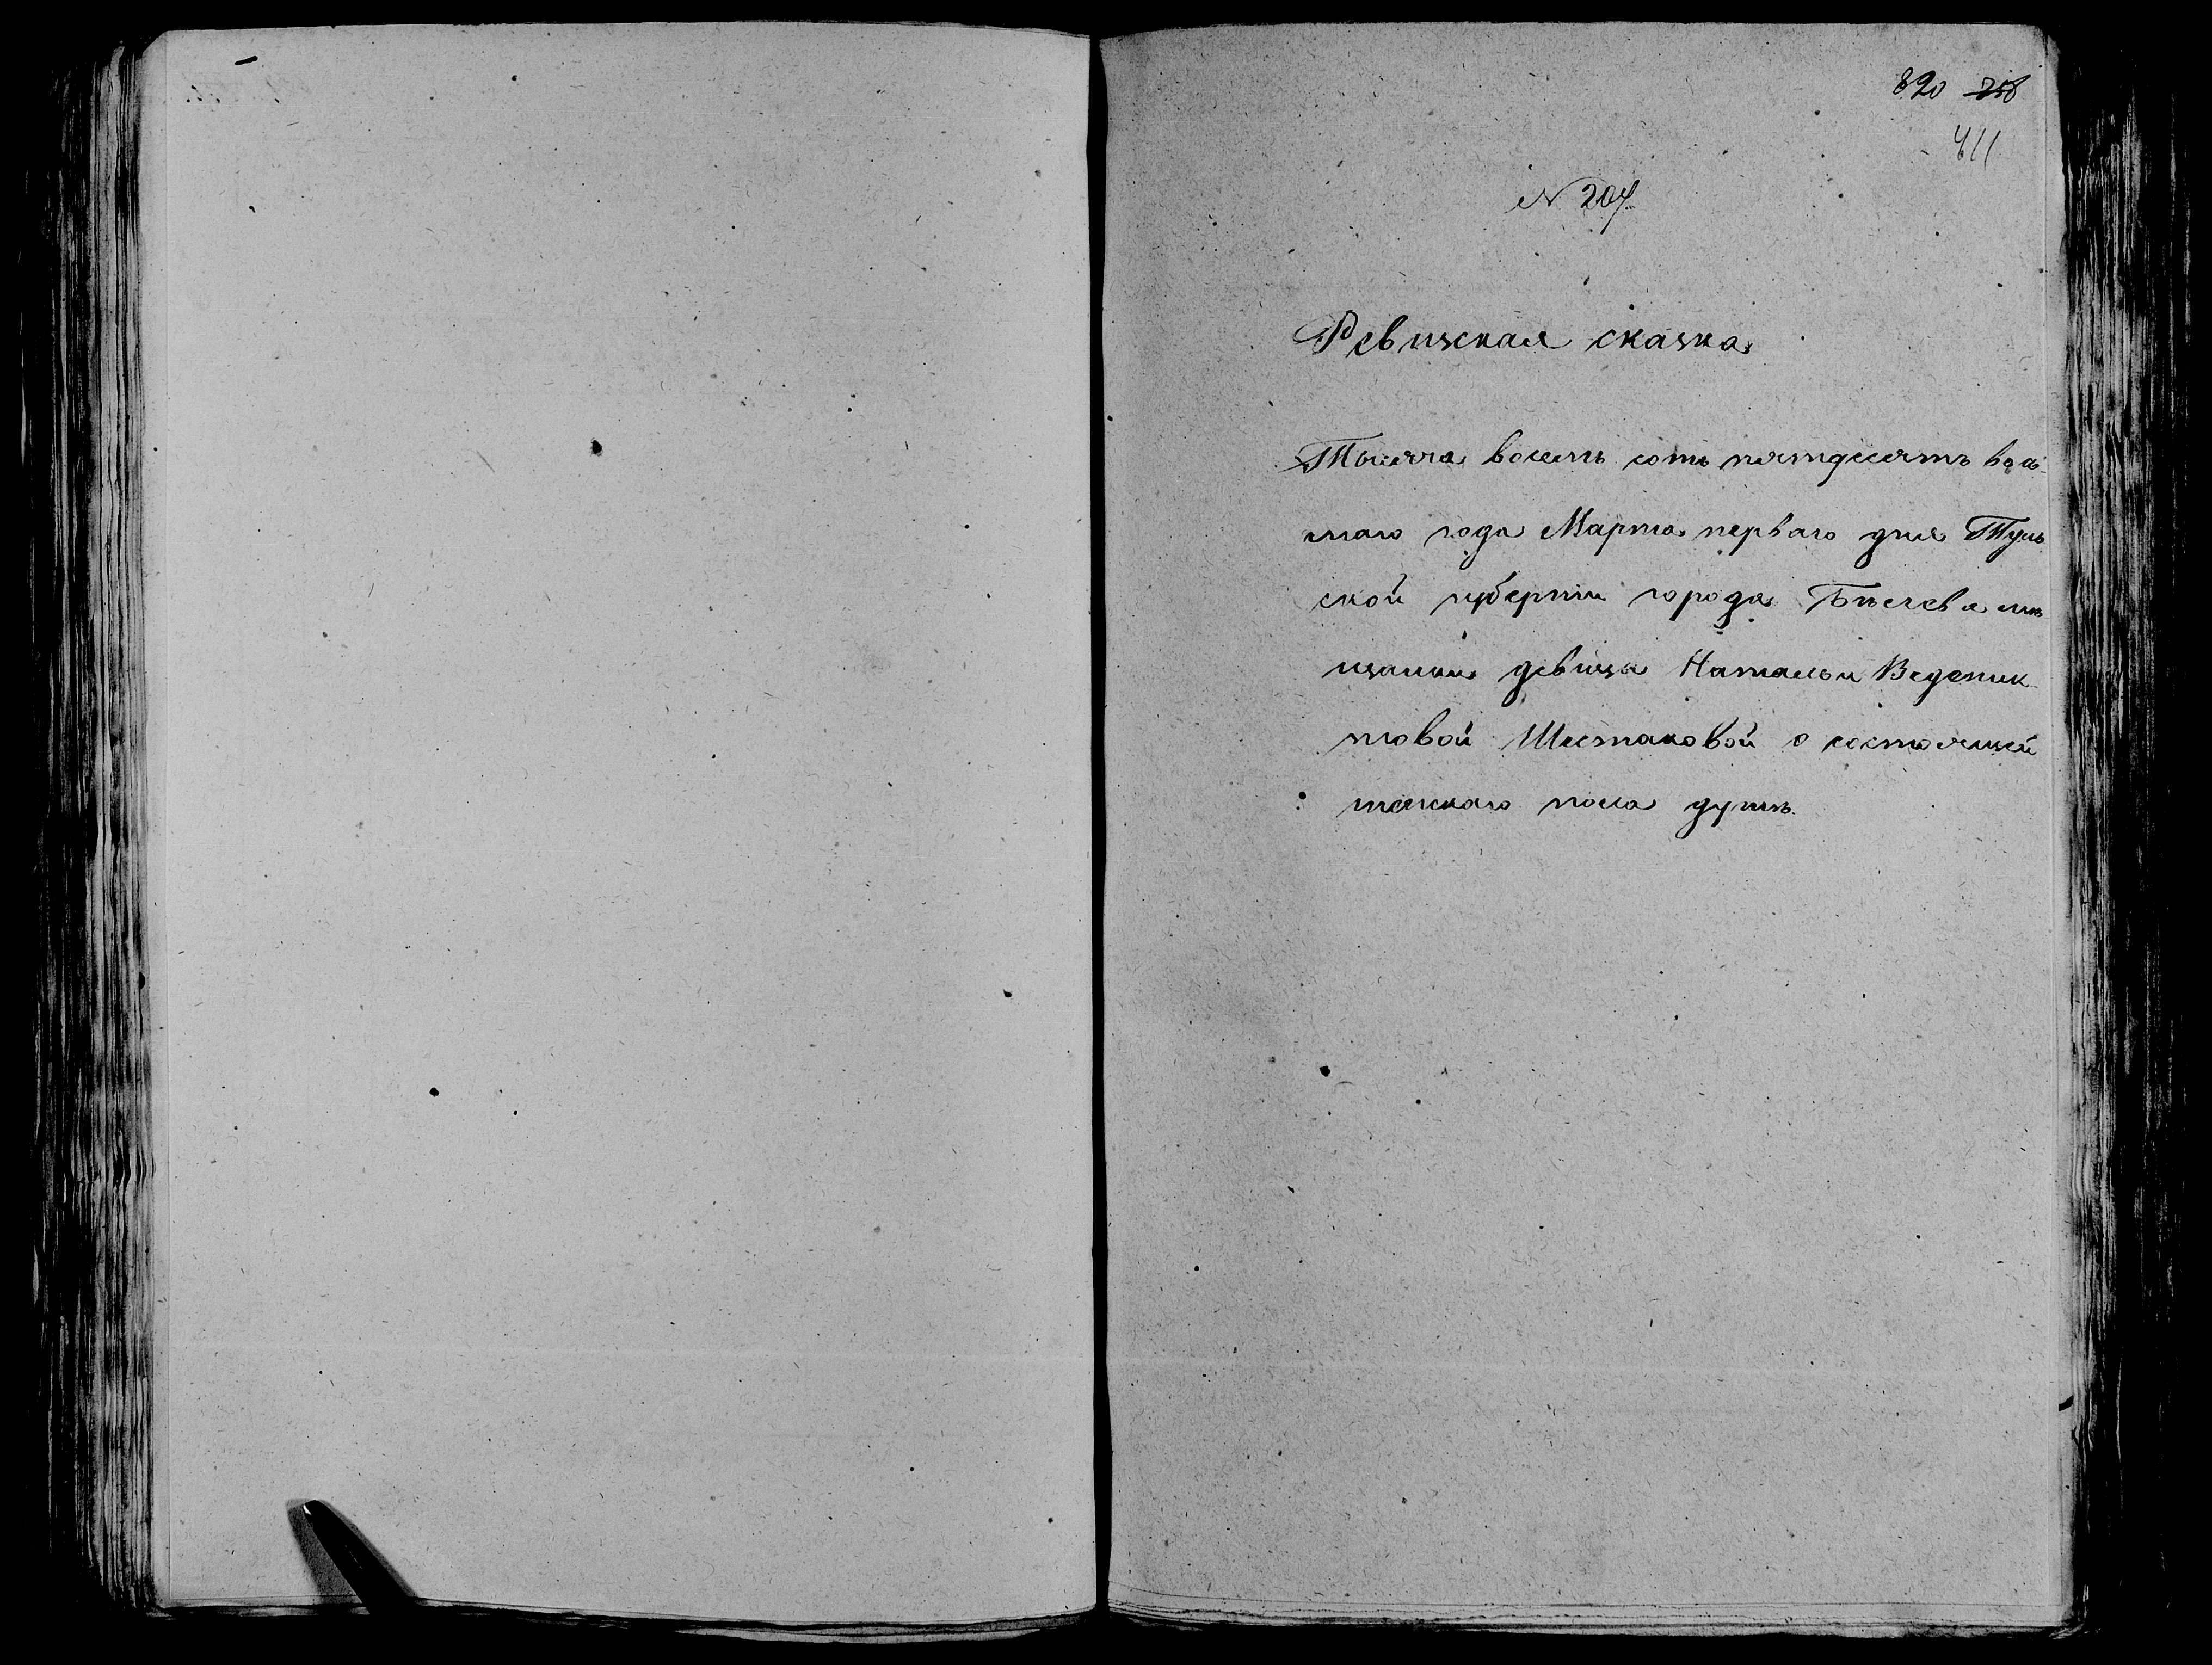 820 758
411
N 207.
Ревизская сказка
Тысяча восемь сотъ пятдесятъ вось-
маго года Марта перваго дня Туль
ской губерніи города Бѣлева мѣ
щанки девицы Натальи Веденик
товой Шестаковой о состоящей
женскаго пола душѣ.